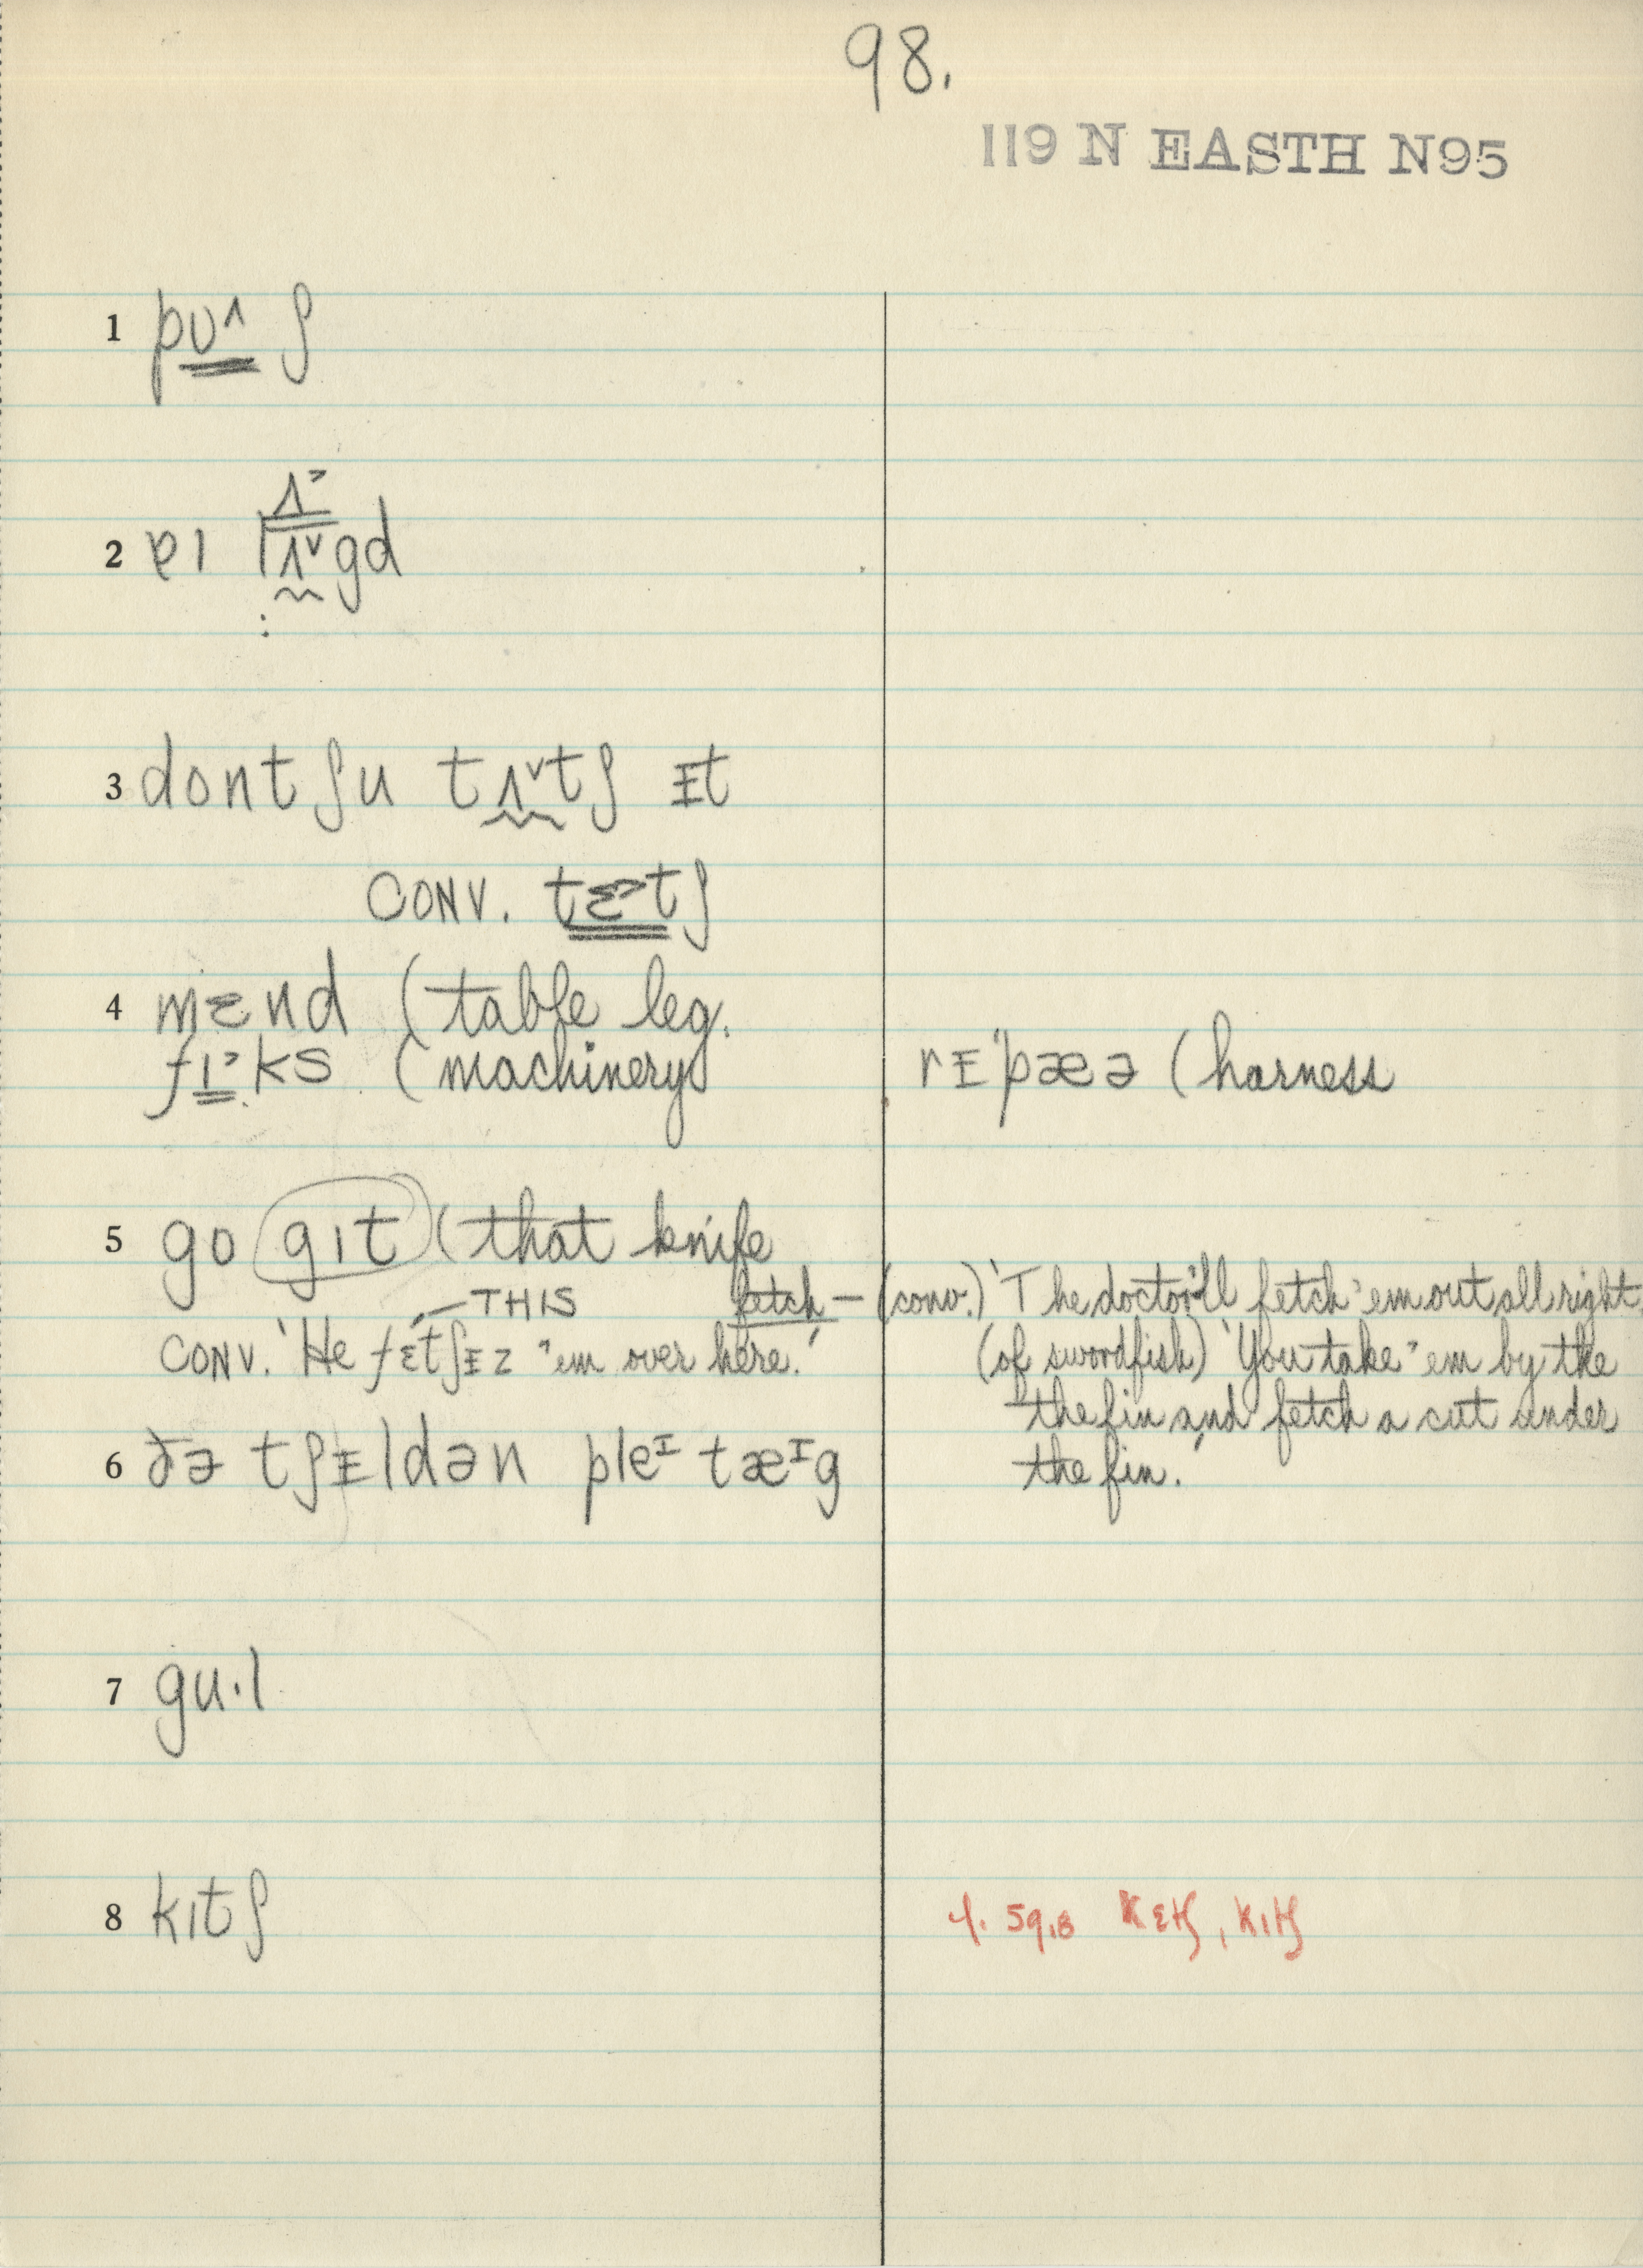 98.
119 N EASTH N95
1 pʊ^ʃ
2 ɐɪ lʌ˅gd
ʌ˃
3 dont ʃu tʌ˅tʃ ᵻt
CONV. tɛ˃tʃ
4 mɛnd (table leg.
fɪ˃ks (machinery
rᵻ'pæə (harness
5 go gɪt (that knife
THIS
CONV. 'He fɛtʃᵻz 'em over here.'
fetch — (conv.) 'The doctor'll fetch 'em out all right.
(of swordfish) 'You take 'em by the
the fin and fetch a cut under
the fin.'
6 ðə tʃᵻldən pleᴵ tæᴵg
7 gu·l
8 kɪtʃ
cf. 59.8 kɛtʃ, kɪtʃ